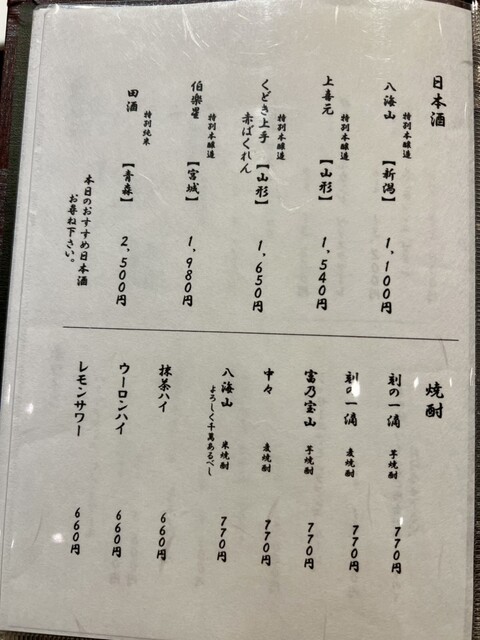 日本酒
八海山 特別本醸造 【新潟】 1,100円
上喜元 特別本醸造 【山形】 1,540円
くどき上手 特別本醸造 【山形】 1,650円
赤ばくれん
伯楽星 特別本醸造 【宮城】 1,980円
田酒 特別純米 【青森】 2,500円
本日のおすすめ日本酒
お尋ね下さい。
焼酎
刻の一滴 芋焼酎 770円
刻の一滴 麦焼酎 770円
富乃宝山 芋焼酎 770円
中々 麦焼酎 770円
八海山 米焼酎 770円
よろしく千萬あるべし
抹茶ハイ 660円
ウーロンハイ 660円
レモンサワー 660円